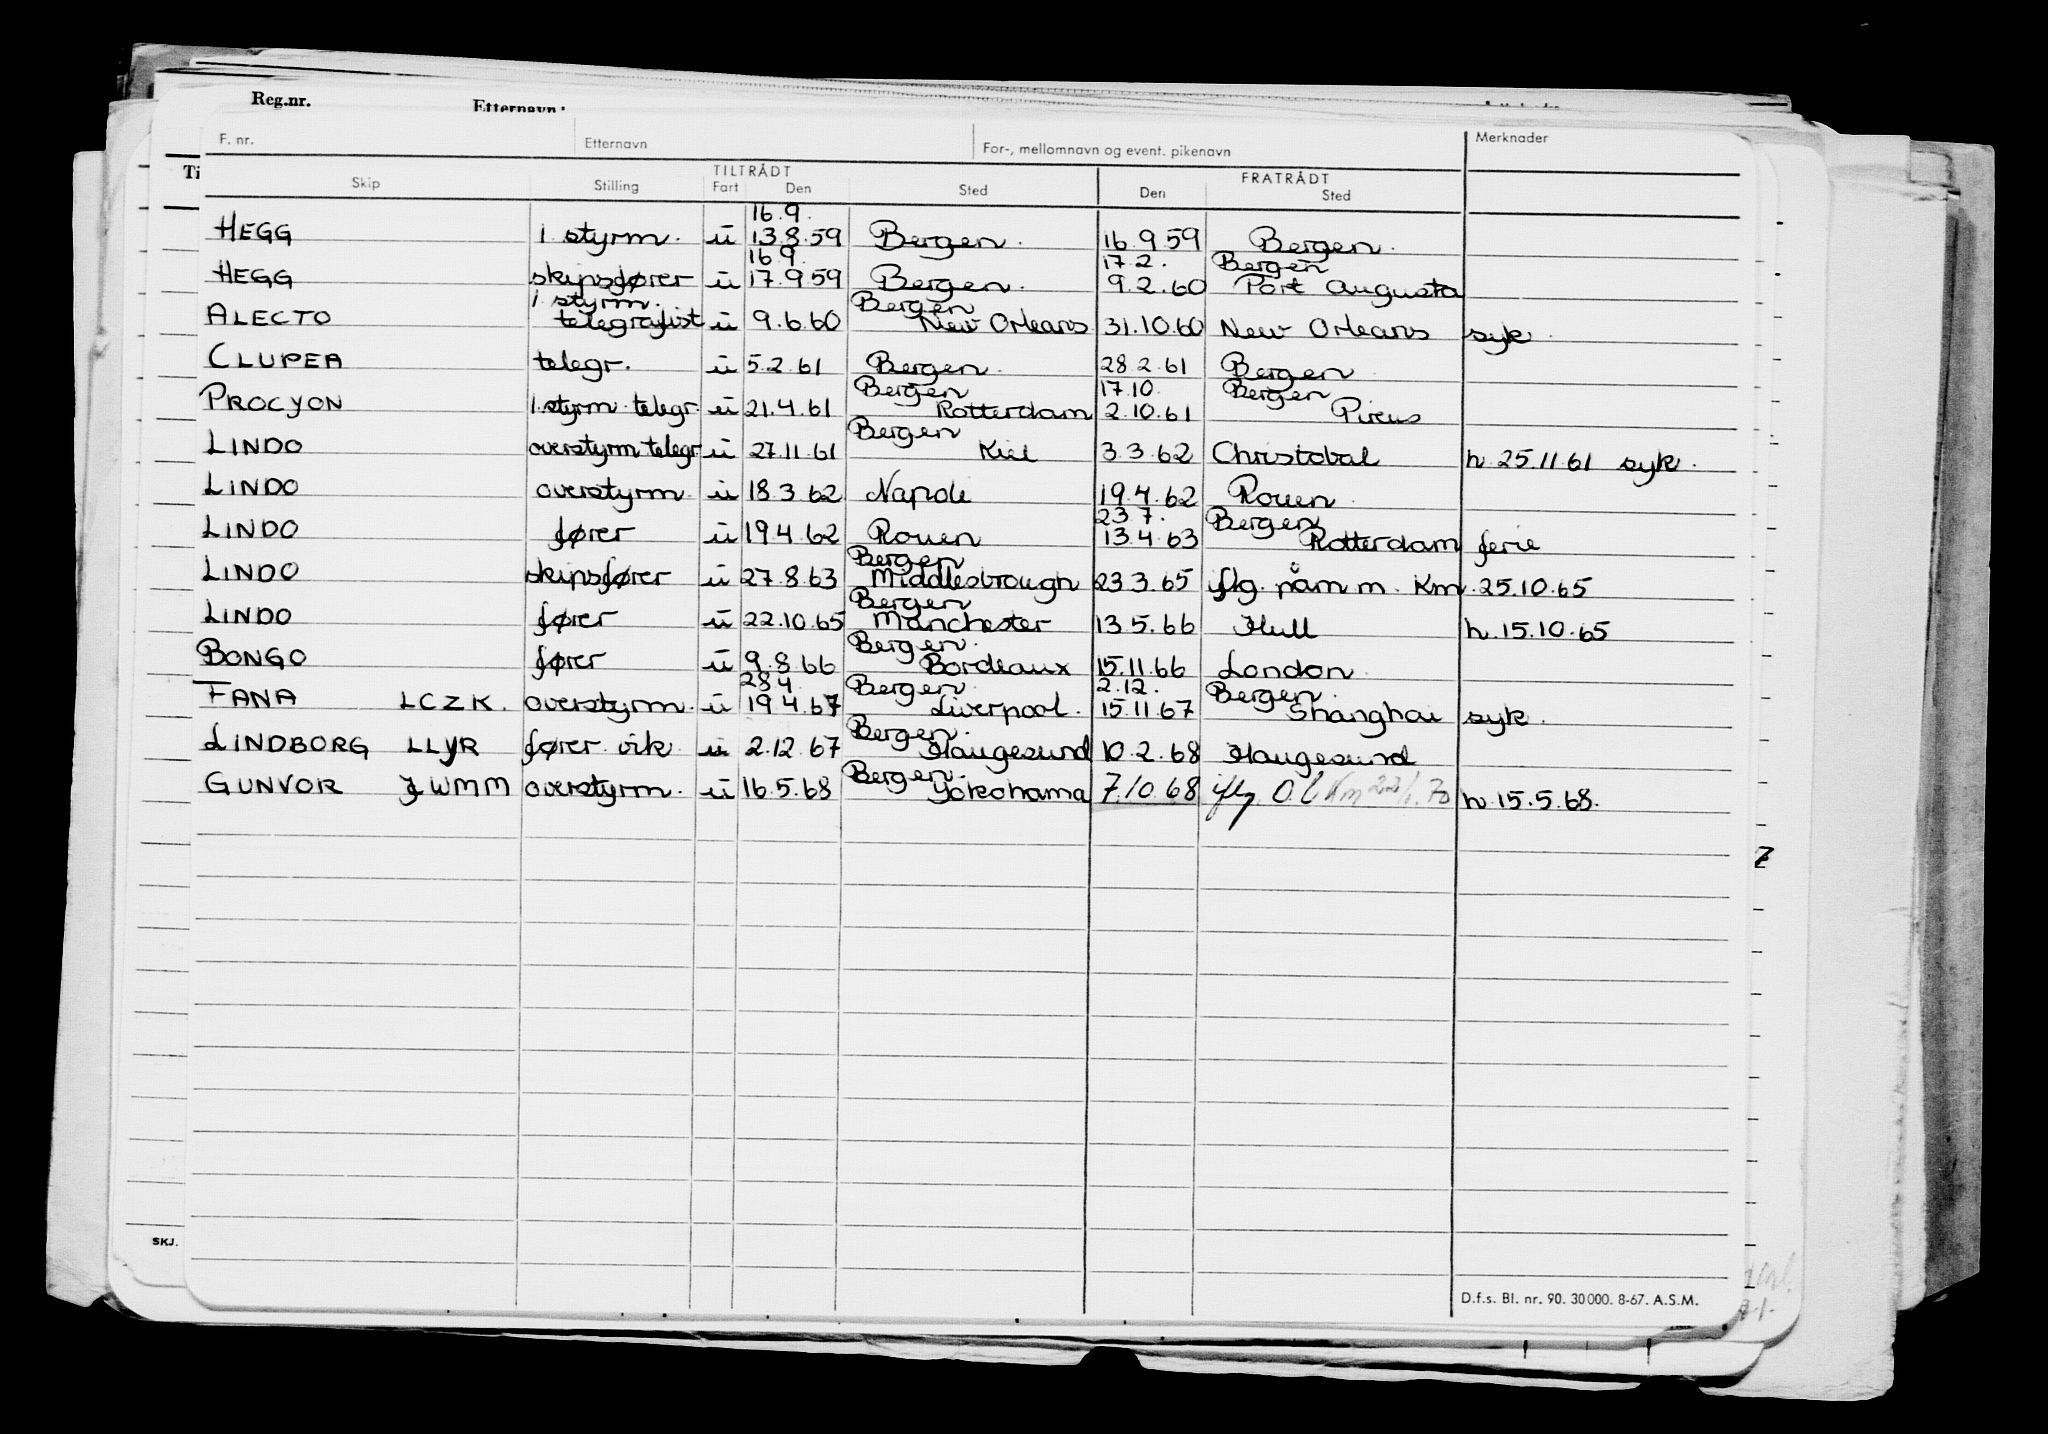 Reg.nr. Etternavn:
F. nr. Etternavn For-, mellomnavn og event. pikenavn Merknader
TILTRÅDT FRATRÅDT
Skip Stilling Fart Den Sted Den Sted
16.9.
HEGG 1 styrm. u 13.8.59 Bergen. 16.9.59 Bergen.
16.9. 17.2. Bergen
HEGG skipsfører u 17.9.59 Bergen. 9.2.60 Port Augusta
1 styrm. Bergen
ALECTO telegrafist u 9.6.60 New Orleans 31.10.60 New Orleans syk.
CLUPEA telegr. u 5.2.61 Bergen. 28.2.61 Bergen.
Bergen 17.10. Bergen
PROCYON 1.styrm. telegr. u 21.4.61 Rotterdam 2.10.61 Pireus
Bergen
LINDO overstyrm telegr u 27.11.61 Kiel 3.3.62 Christobal h.25.11.61 syk.
LINDO overstyrm. u 18.3.62 Napoli 19.4.62 Rouen.
23.7. Bergen
LINDO fører u 19.4.62 Rouen 13.4.63 Rotterdam ferie
Bergen
LINDO skipsfører u 27.8.63 Middlesbrough 23.3.65 iflg. påm m. Km. 25.10.65
Bergen
LINDO fører u 22.10.65 Manchester 13.5.66 Hull h.15.10.65
Bergen.
BONGO fører u 9.8.66 Bordeaux 15.11.66 London.
28.4. Bergen. 2.12. Bergen.
FANA LCZK. overstyrm. u 19.4.67 Liverpool. 15.11.67 Shanghai syk.
Bergen.
LINDBORG LLYR fører vik. u 2.12.67 Haugesund 10.2.68 Haugesund
Bergen.
GUNVOR JWMM overstyrm. u 16.5.68 Yokohama 7.10.68 iflg Km h.15.5.68.
7
SKJ.
D.f.s. Bl. nr. 90. 30000. 8-67. A.S.M.